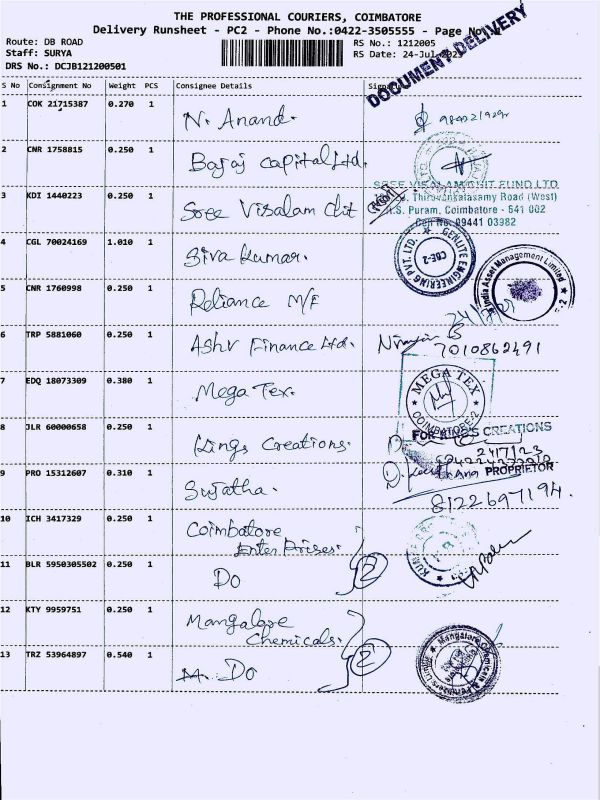 THE PROFESSIONAL COURIERS, COIMBATORE
Delivery Runsheet - PC2 - Phone No.:0422-3505555 - Page No.
Route: DB ROAD
RS No.: 1212005
Staff: SURYA
RS Date: 24-Jul-2023
DRS No.: DCJB121200501
DOCUMENT DELIVERY
S No Consignment No Weight PCS Consignee Details
1 COK 21715387 0.270 1 N. Anand.
2 CNR 1758815 0.250 1 Bajaj capital Ltd.
SREE VISALAM CHIT FUND LTD
Thiruvenkatasamy Road (West)
R.S. Puram, Coimbatore - 641 002
Cell No: 09441 03982
3 KDI 1440223 0.250 1 Sree Visalam Chit
4 CGL 70024169 1.010 1 Siva kumar.
GENLITE ENGINEERING PVT. LTD.
CBE-2
5 CNR 1760998 0.250 1 Reliance M/F
India Asset Management Limited
6 TRP 5881060 0.250 1 Ashv Finance Ltd.
7010862491
7 EDQ 18073309 0.380 1 Mega Tex.
MEGA TEX
COIMBATORE-2
8 JLR 60000658 0.250 1 Kings Creations.
FOR KINGS CREATIONS
24/7/23
PROPRIETOR
9 PRO 15312607 0.310 1 Sujatha.
8122697194.
10 ICH 3417329 0.250 1 Coimbatore
Enterprises.
11 BLR 5950305502 0.250 1 Do
2
12 KTY 9959751 0.250 1 Mangalore
Chemicals.
13 TRZ 53964897 0.540 1 M. Do
2
Mangalore Chemicals & Fertilizers Limited